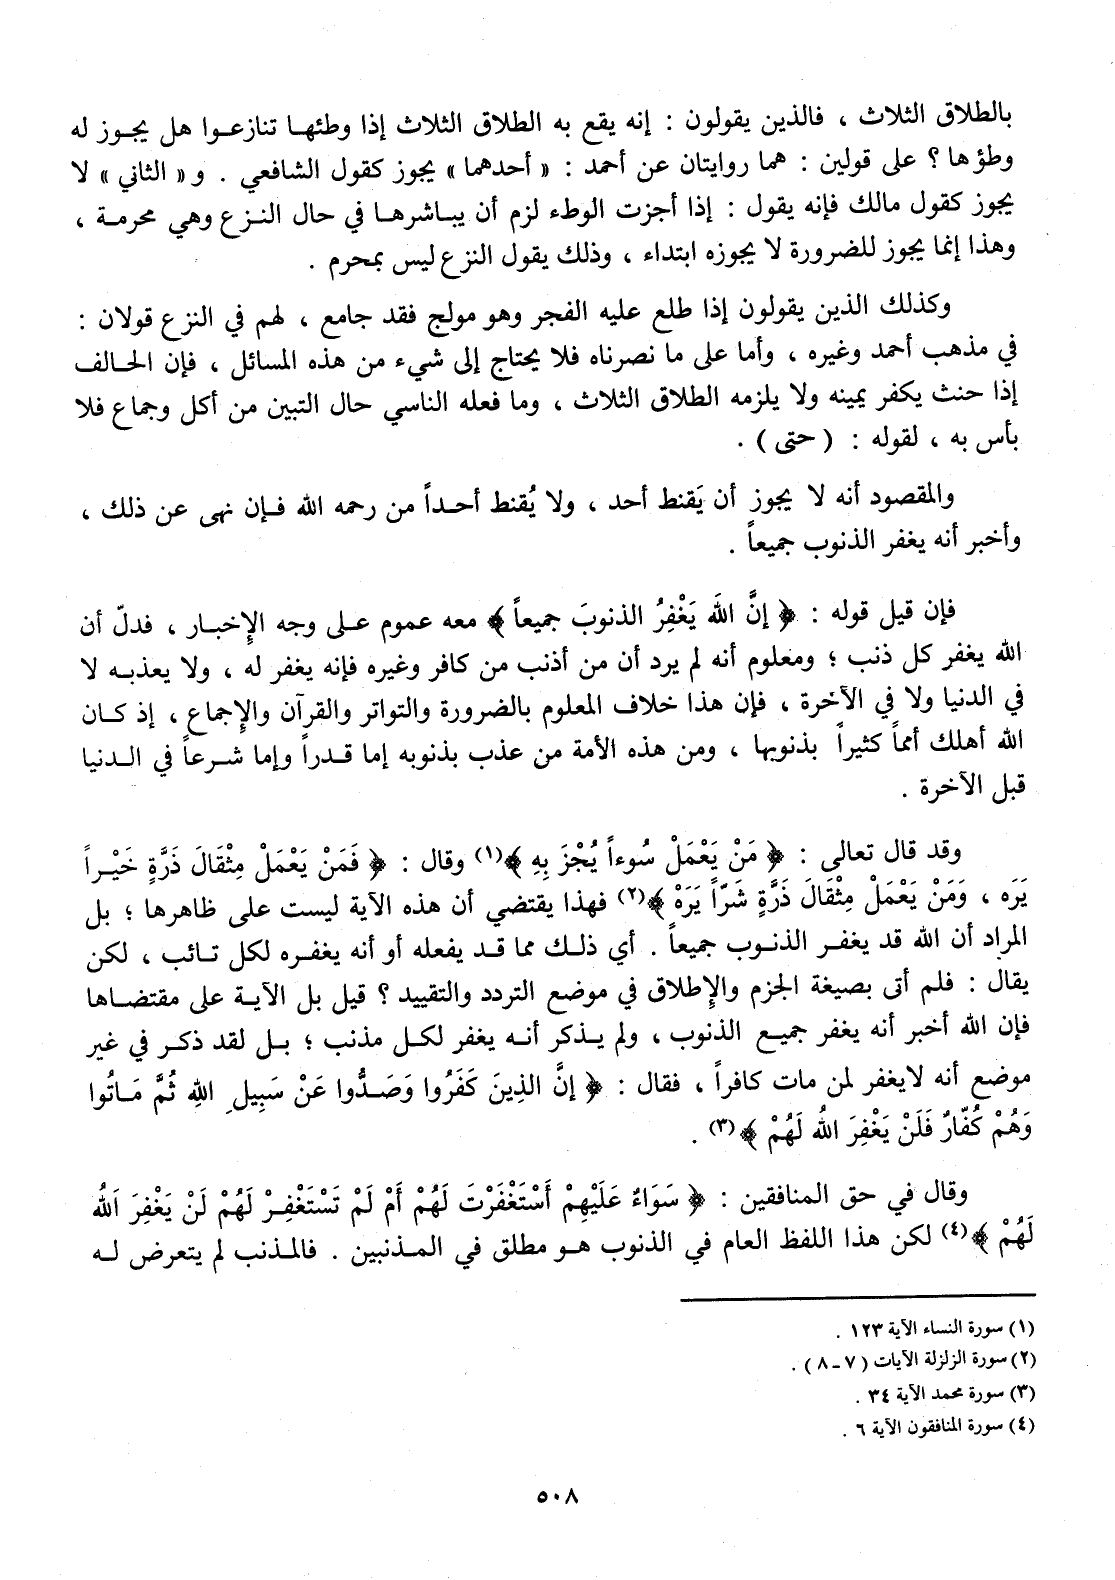 بالطلاق الثلاث ، فالذين يقولون : إنه يقع به الطلاق الثلاث إذا وطئها تنازعوا هل يجوز له
وطؤها ؟ على قولين : هما روايتان عن أحمد : « أحدهما » يجوز كقول الشافعي . و« الثاني » لا
يجوز كقول مالك فإنه يقول : إذا أجزت الوطء لزم أن يباشرها في حال النزع وهي محرمة ،
وهذا إنما يجوز للضرورة لا يجوزه ابتداء ، وذلك يقول النزع ليس بمحرم .
وكذلك الذين يقولون إذا طلع عليه الفجر وهو مولج فقد جامع ، لهم في النزع قولان :
في مذهب أحمد وغيره ، وأما على ما نصرناه فلا يحتاج إلى شيء من هذه المسائل ، فإن الحالف
إذا حنث يكفر يمينه ولا يلزمه الطلاق الثلاث ، وما فعله الناسي حال التبين من أكل وجماع فلا
بأس به ، لقوله : ( حتى ) .
والمقصود أنه لا يجوز أن يَقنط أحد ، ولا يُقنط أحداً من رحمه الله فإن نهى عن ذلك ،
وأخبر أنه يغفر الذنوب جميعاً .
فإن قيل قوله : ﴿ إنَّ اللهَ يَغْفِرُ الذنوبَ جميعاً ﴾ معه عموم على وجه الإِخبار ، فدلّ أن
الله يغفر كل ذنب ؛ ومعلوم أنه لم يرد أن من أذنب من كافر وغيره فإنه يغفر له ، ولا يعذبه لا
في الدنيا ولا في الآخرة ، فإن هذا خلاف المعلوم بالضرورة والتواتر والقرآن والإِجماع ، إذ كان
الله أهلك أمماً كثيراً بذنوبها ، ومن هذه الأمة من عذب بذنوبه إما قدراً وإما شرعاً في الدنيا
قبل الآخرة .
وقد قال تعالى : ﴿ مَنْ يَعْمَلْ سُوءاً يُجْزَ بِهِ ﴾(١) وقال : ﴿ فَمَنْ يَعْمَلْ مِثْقَالَ ذَرَّةٍ خَيْراً
يَرَه ، وَمَنْ يَعْمَلْ مِثْقَالَ ذَرَّةٍ شَرّاً يَرَهْ ﴾(٢) فهذا يقتضي أن هذه الآية ليست على ظاهرها ؛ بل
المراد أن الله قد يغفر الذنوب جميعاً . أي ذلك مما قد يفعله أو أنه يغفره لكل تائب ، لكن
يقال : فلم أتى بصيغة الجزم والإِطلاق في موضع التردد والتقييد ؟ قيل بل الآية على مقتضاها
فإن الله أخبر أنه يغفر جميع الذنوب ، ولم يذكر أنه يغفر لكل مذنب ؛ بل لقد ذكر في غير
موضع أنه لايغفر لمن مات كافراً ، فقال : ﴿ إنَّ الذِينَ كَفَرُوا وَصَدُّوا عَنْ سَبِيلِ اللهِ ثُمَّ مَاتُوا
وَهُمْ كُفّارٌ فَلَنْ يَغْفِرَ اللهُ لَهُمْ ﴾(٣) .
وقال في حق المنافقين : ﴿ سَوَاءٌ عَلَيْهِمْ أَسْتَغْفَرْتَ لَهُمْ أَمْ لَمْ تَسْتَغْفِرْ لَهُمْ لَنْ يَغْفِرَ اَللهُ
لَهُمْ ﴾(٤) لكن هذا اللفظ العام في الذنوب هو مطلق في المذنبين . فالمذنب لم يتعرض له
(١) سورة النساء الآية ١٢٣ .
(٢) سورة الزلزلة الآيات ( ٧ - ٨ ) .
(٣) سورة محمد الآية ٣٤ .
(٤) سورة المنافقون الآية ٦ .
٥٠٨